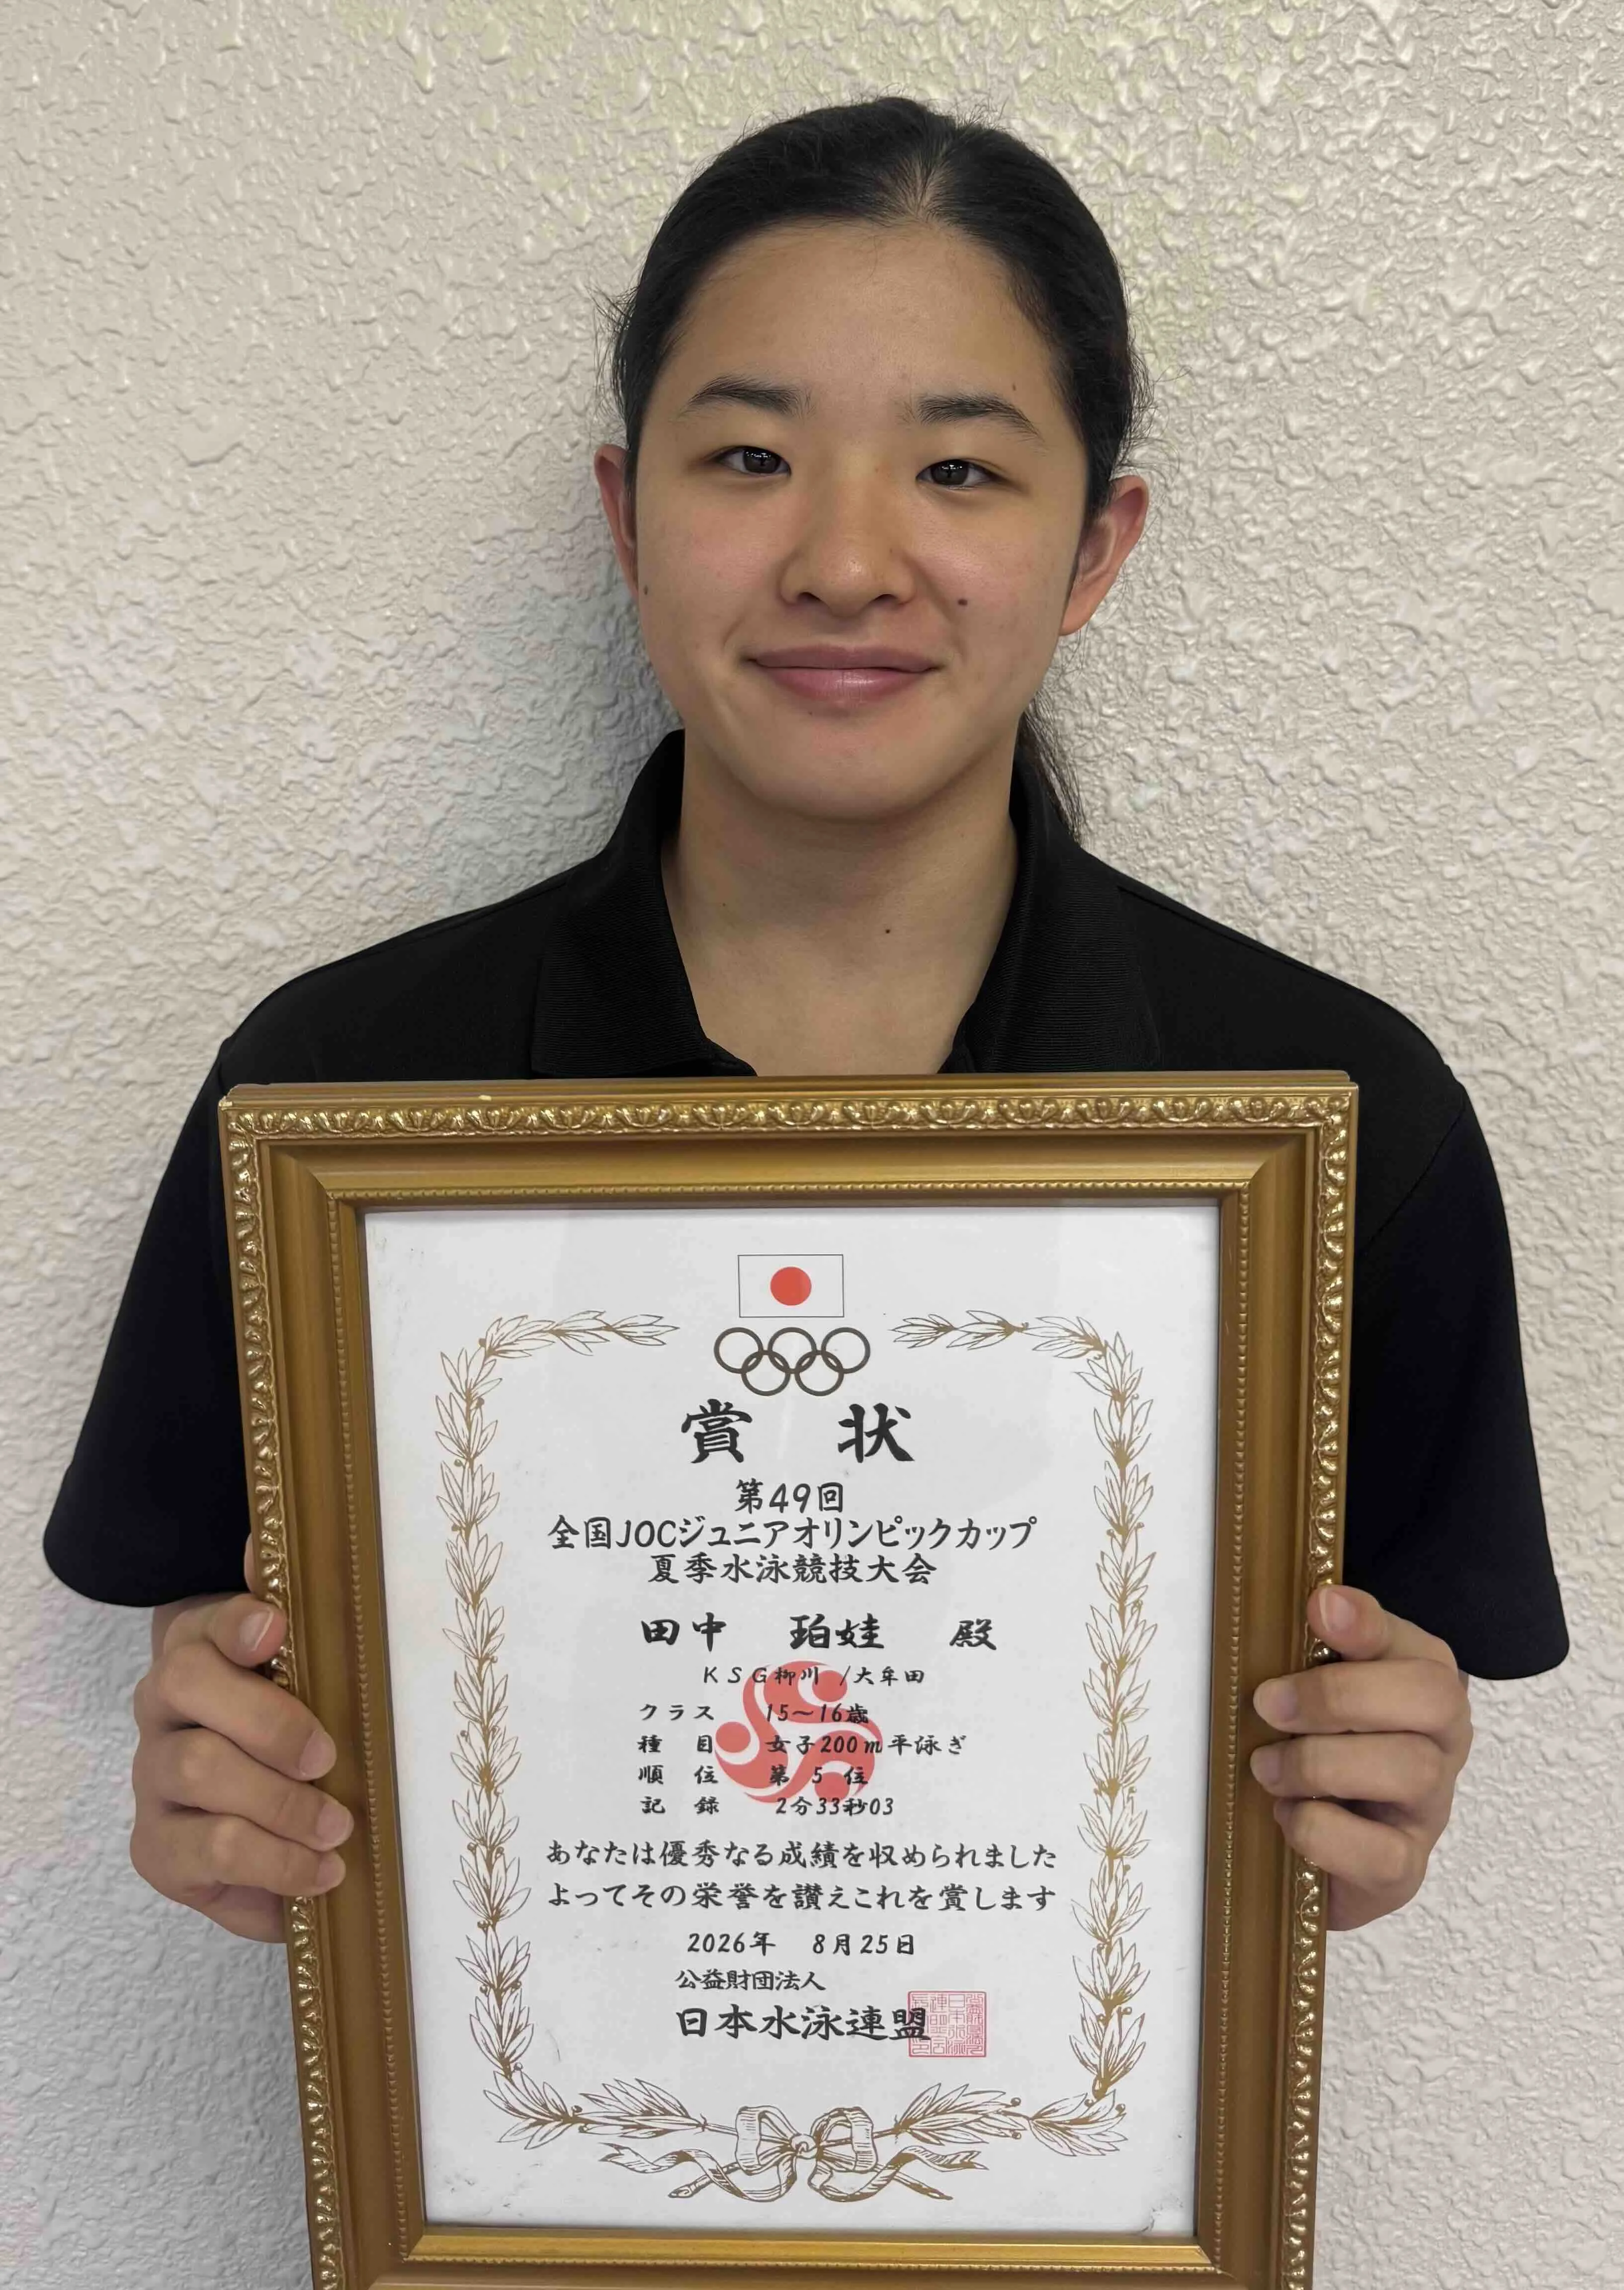 賞状
第49回
全国JOCジュニアオリンピックカップ
夏季水泳競技大会
田中 珀娃 殿
KSG柳川/大牟田
クラス 15〜16歳
種目 女子200m平泳ぎ
順位 第5位
記録 2分33秒03
あなたは優秀なる成績を収められました
よってその栄誉を讃えこれを賞します
2026年 8月25日
公益財団法人
日本水泳連盟